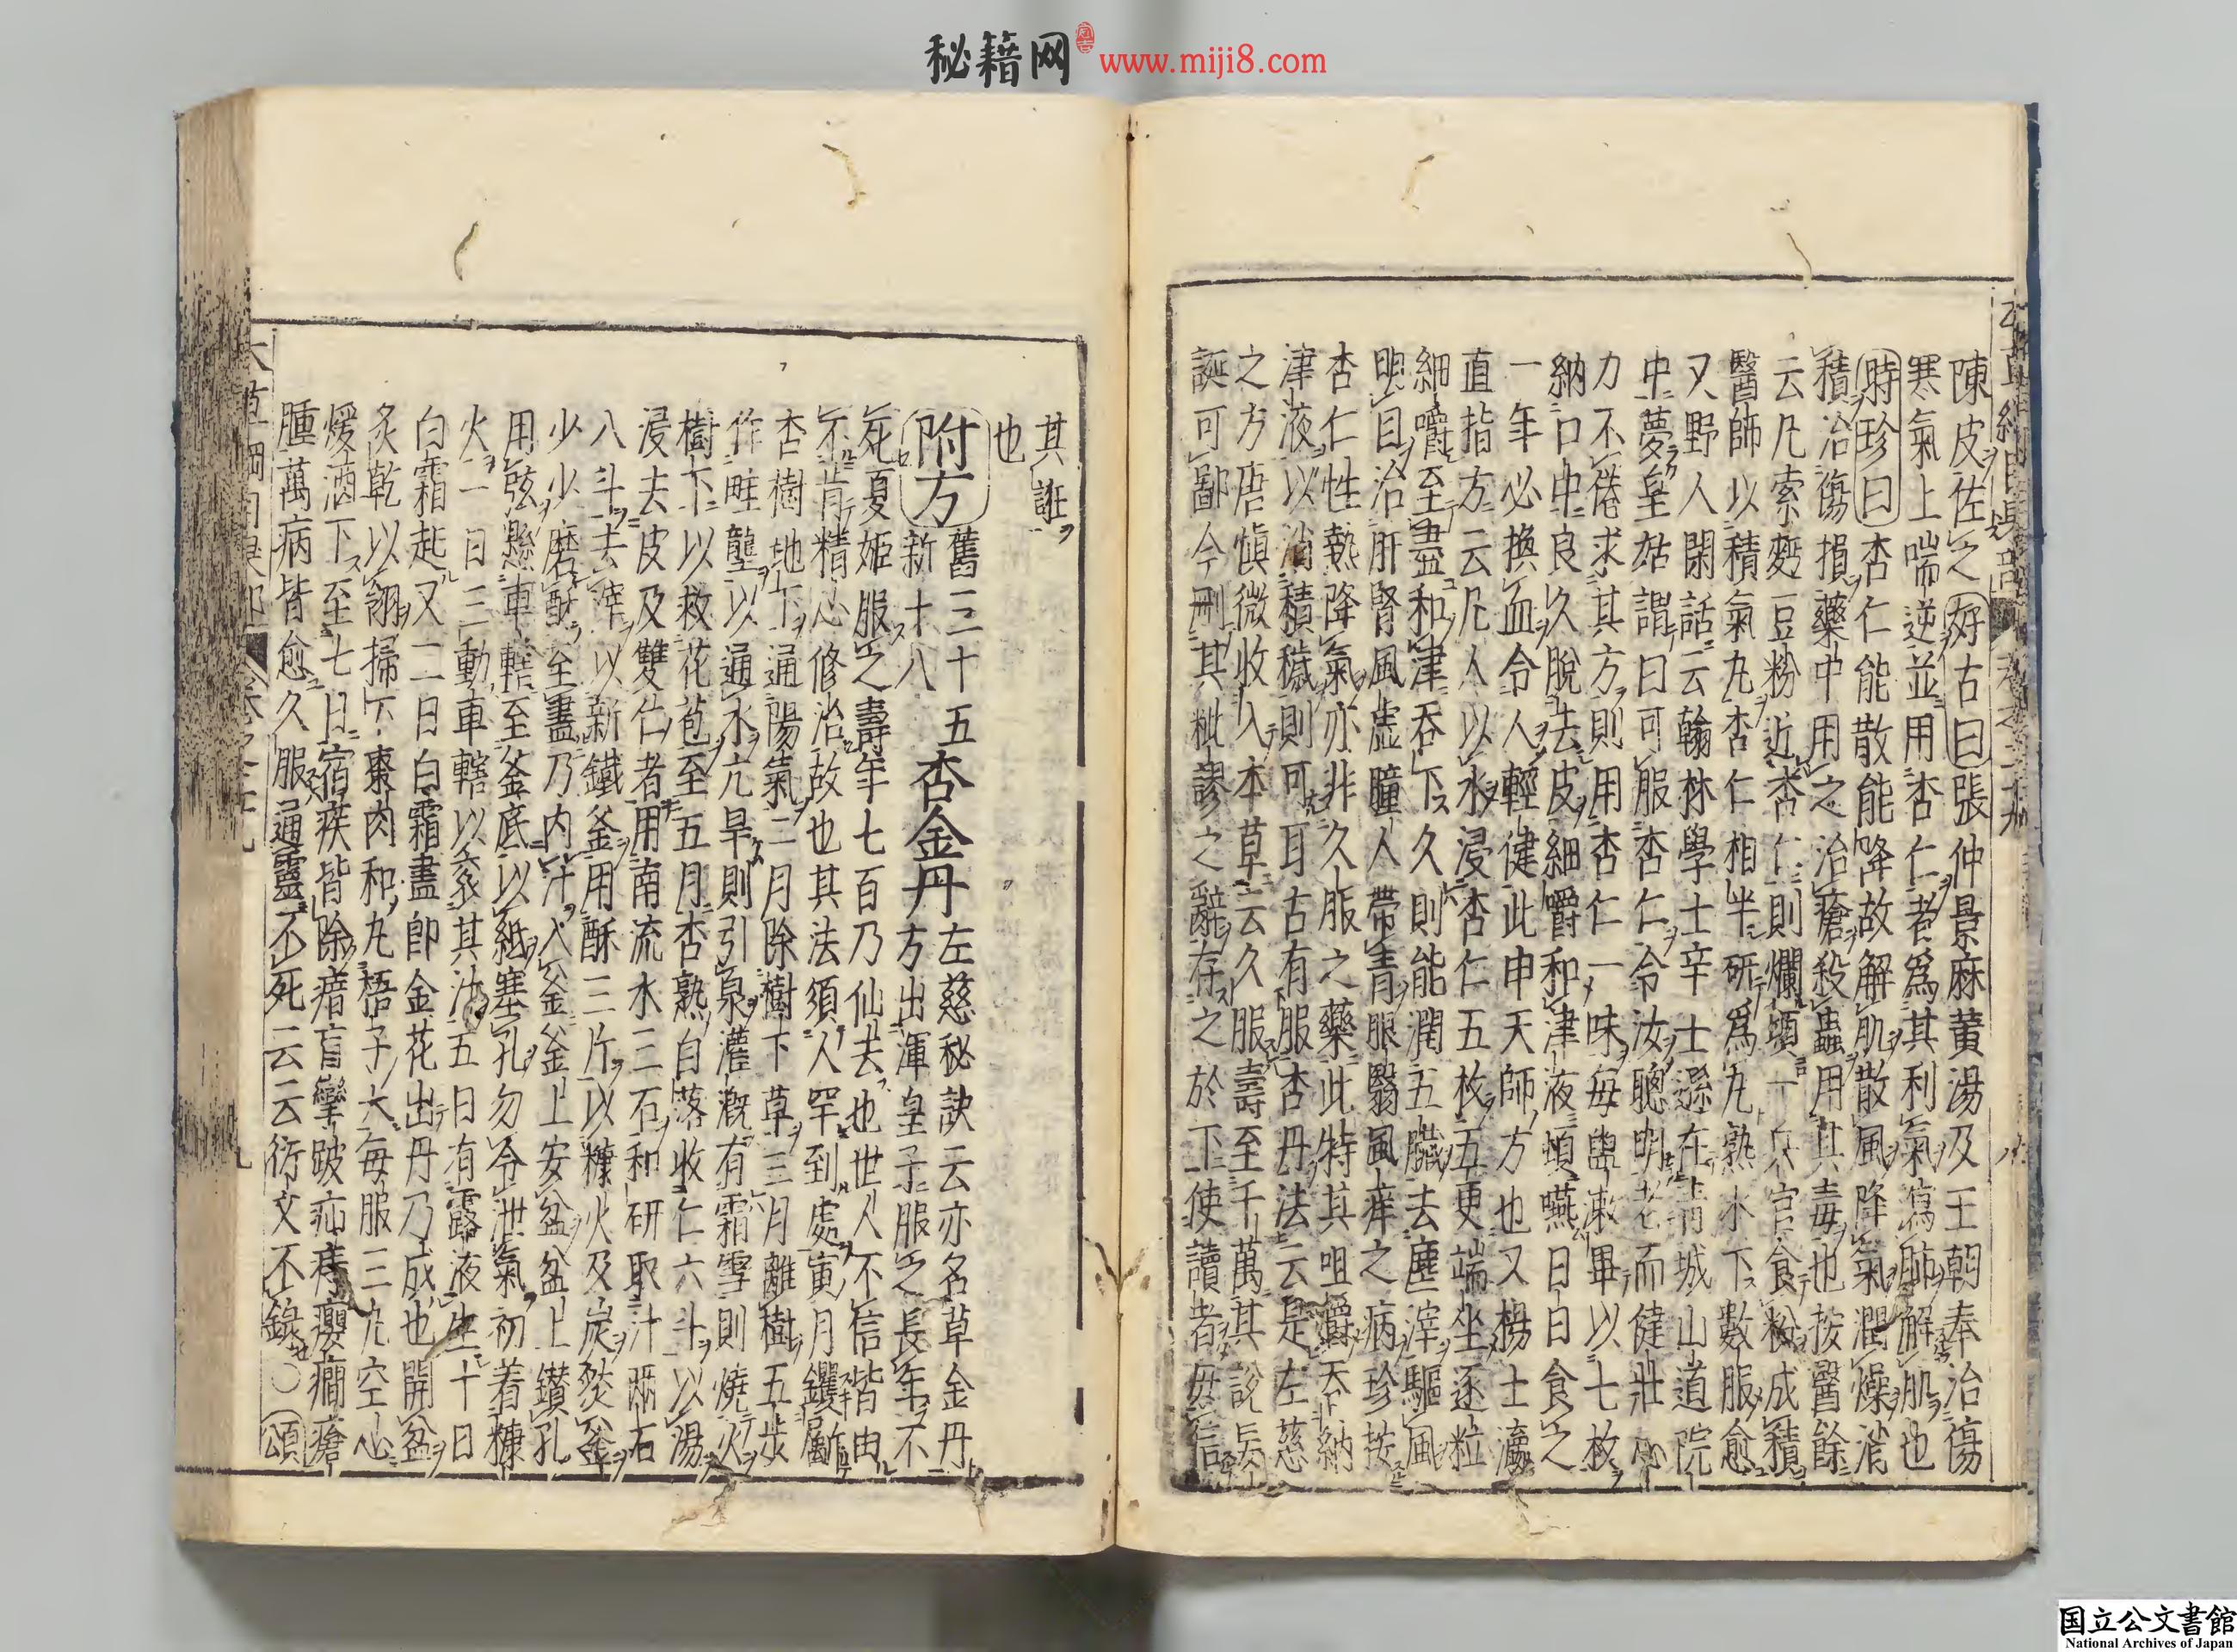 秘籍网 www.miji8.com
陳皮佐之好古曰張仲景麻黄湯及王朝奉治傷
寒氣上喘逆並用杏仁者爲其利氣瀉肺解肌也
時珍曰杏仁能散能降故解肌散風降氣潤燥消
積治傷損藥中用之治瘡殺蟲用其毒也按醫餘
云凡索麪豆粉近杏仁則爛頃一兵官食粉成積
醫師以積氣丸杏仁相半研爲丸熟水下數服愈
又野人閑話云翰林學士辛士遜在青城山道院
中夢皇姑謂曰可服杏仁令汝聰明老而健壯心
力不倦求其方則用杏仁一味每盥漱畢以七枚
納口中良久脫去皮細嚼和津液頓嚥日日食之
一年必換血令人輕健此申天師方也又楊士瀛
直指方云凡人以水浸杏仁五枚五更端坐逐粒
細嚼至盡和津吞下久則能潤五臟去塵滓驅風
明目治肝腎風虛瞳人帶青眼翳風痒之病珍按
杏仁性熱降氣亦非久服之藥此特其咀嚼吞納
津液以消積穢則可耳古有服杏丹法云是左慈
之方唐慎微收入本草云久服壽至千萬其說妄
誕可鄙今刪其紕謬之辭存之於下使讀者毋信
其誑
也
附方舊三十五新十八杏金丹左慈秘訣云亦名草金丹方出渾皇子服之長年不
死夏姬服之壽年七百乃仙去也世人不信皆由
不肯精心修治故也其法須人罕到處寅月钁斸
杏樹地下通陽氣二月除樹下草三月離樹五步
作畦壟以通水亢旱則引泉灌漑有霜雪則燒火
樹下以救花苞至五月杏熟自落收仁六斗以湯
浸去皮及雙仁者用南流水三石和研取汁兩石
八斗去滓以新鐵釜用酥三斤以糠火及炭燃釜
少少磨酥至盡乃内汁入釜釜上安盆盆上鑚孔
用弦懸車轄至釜底以紙塞孔勿令泄氣初着糠
火一日三動車轄以衮其汁五日有露液生十日
白霜起又二日白霜盡即金花出丹乃成也開盆
炙乾以翎掃下棗肉和丸梧子大每服三丸空心
煖酒下至七日宿疾皆除瘖盲攣跛疝痔癭癎瘡
腫萬病皆愈久服通靈不死云云衍文不錄○頌
国立公文書館
National Archives of Japan